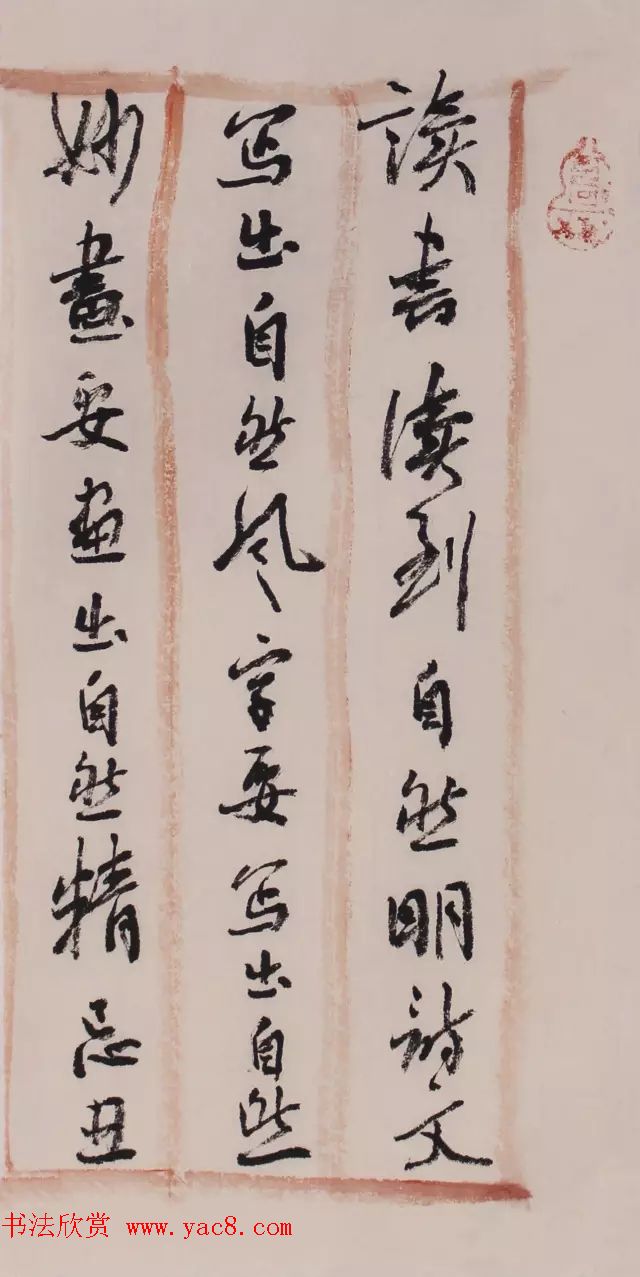 讀書讀到自然明詩文
写出自然风字要写出自然
妙畫要畫出自然精忌丑
书法欣赏 www.yac8.com